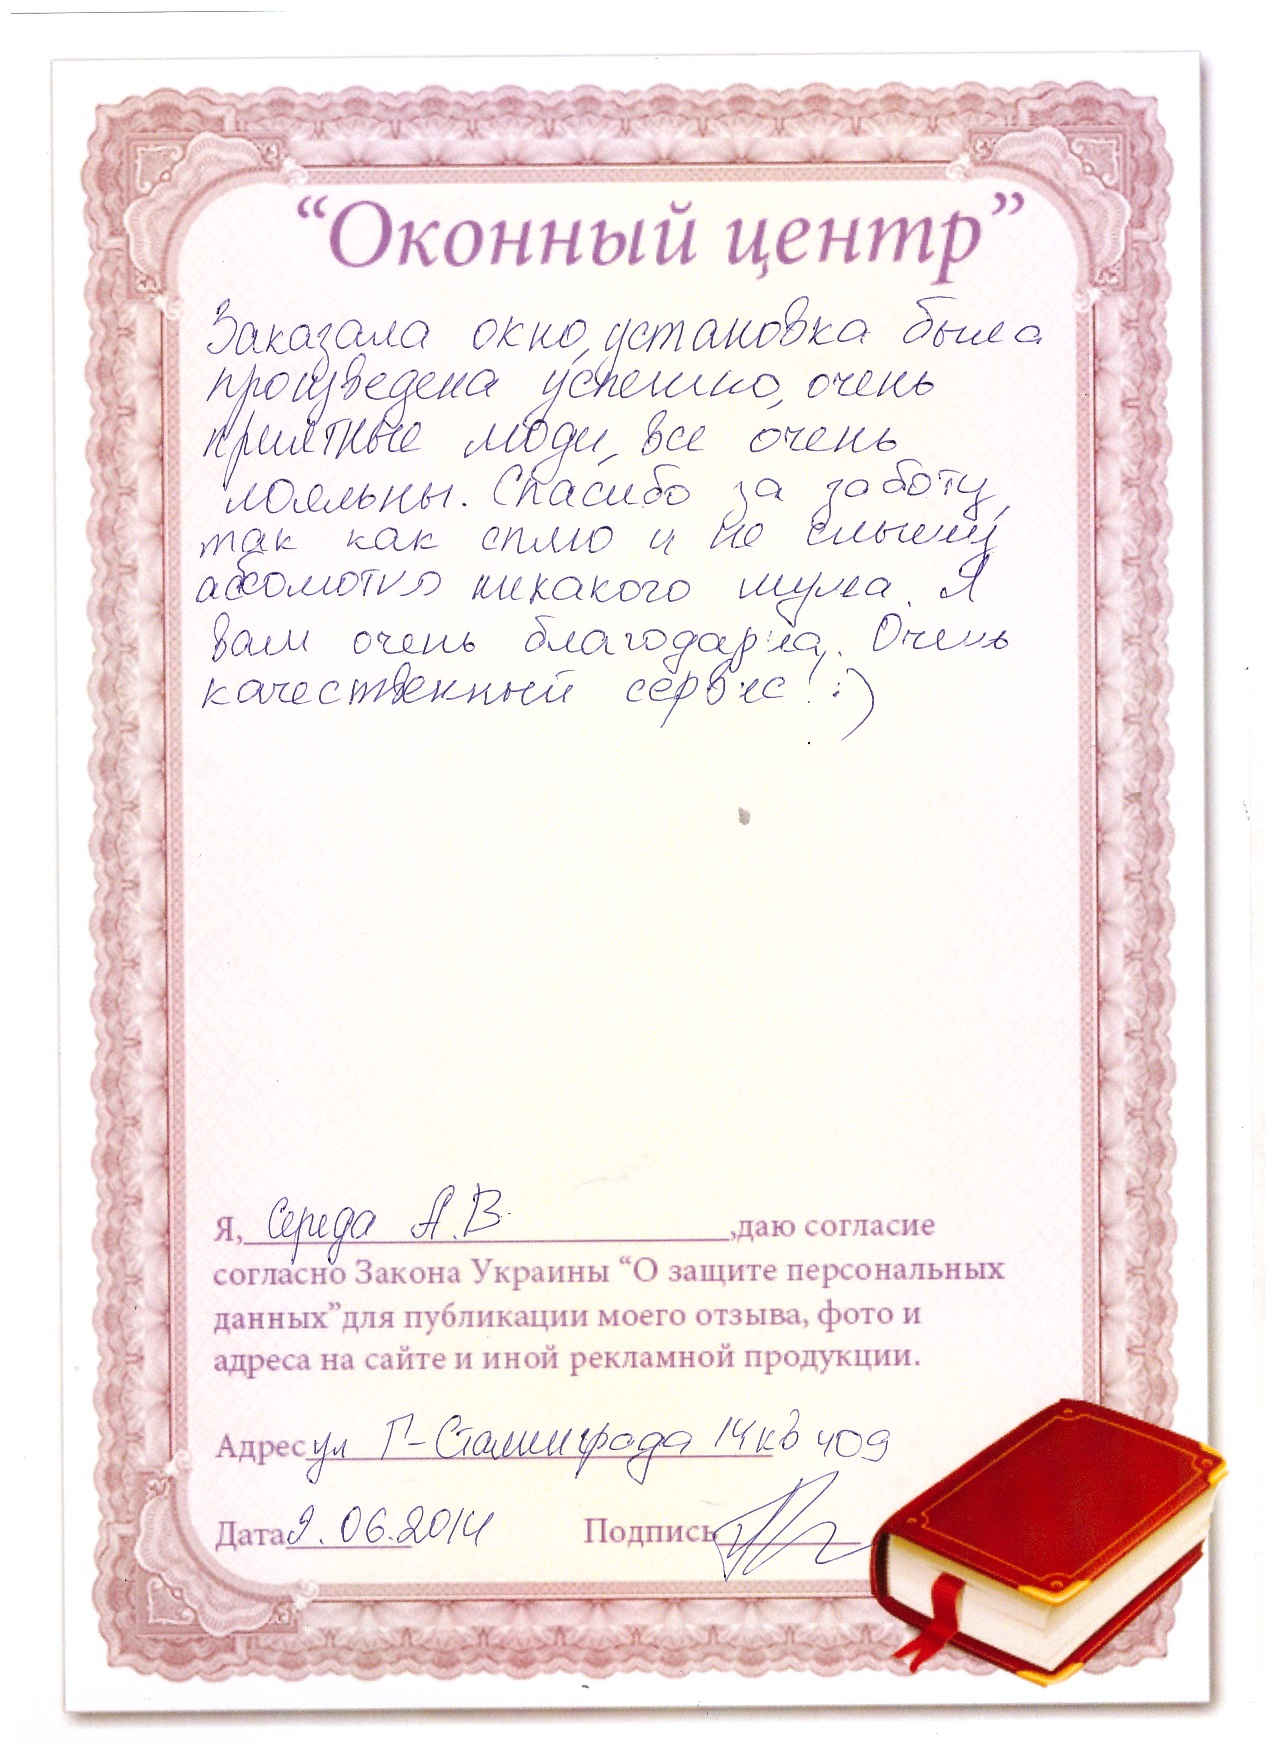 “Оконный центр”
Заказала окно, установка была
произведена успешно, очень
приятные люди, все очень
лояльны. Спасибо за заботу,
так как сплю и не слышу
абсолютно никакого шума. Я
вам очень благодарна. Очень
качественный сервис! :)
Я, Середа А.В. ,даю согласие
согласно Закона Украины “О защите персональных
данных”для публикации моего отзыва, фото и
адреса на сайте и иной рекламной продукции.
Адрес ул Г-Сталинграда 14 кв 409
Дата 9.06.2014 Подпись